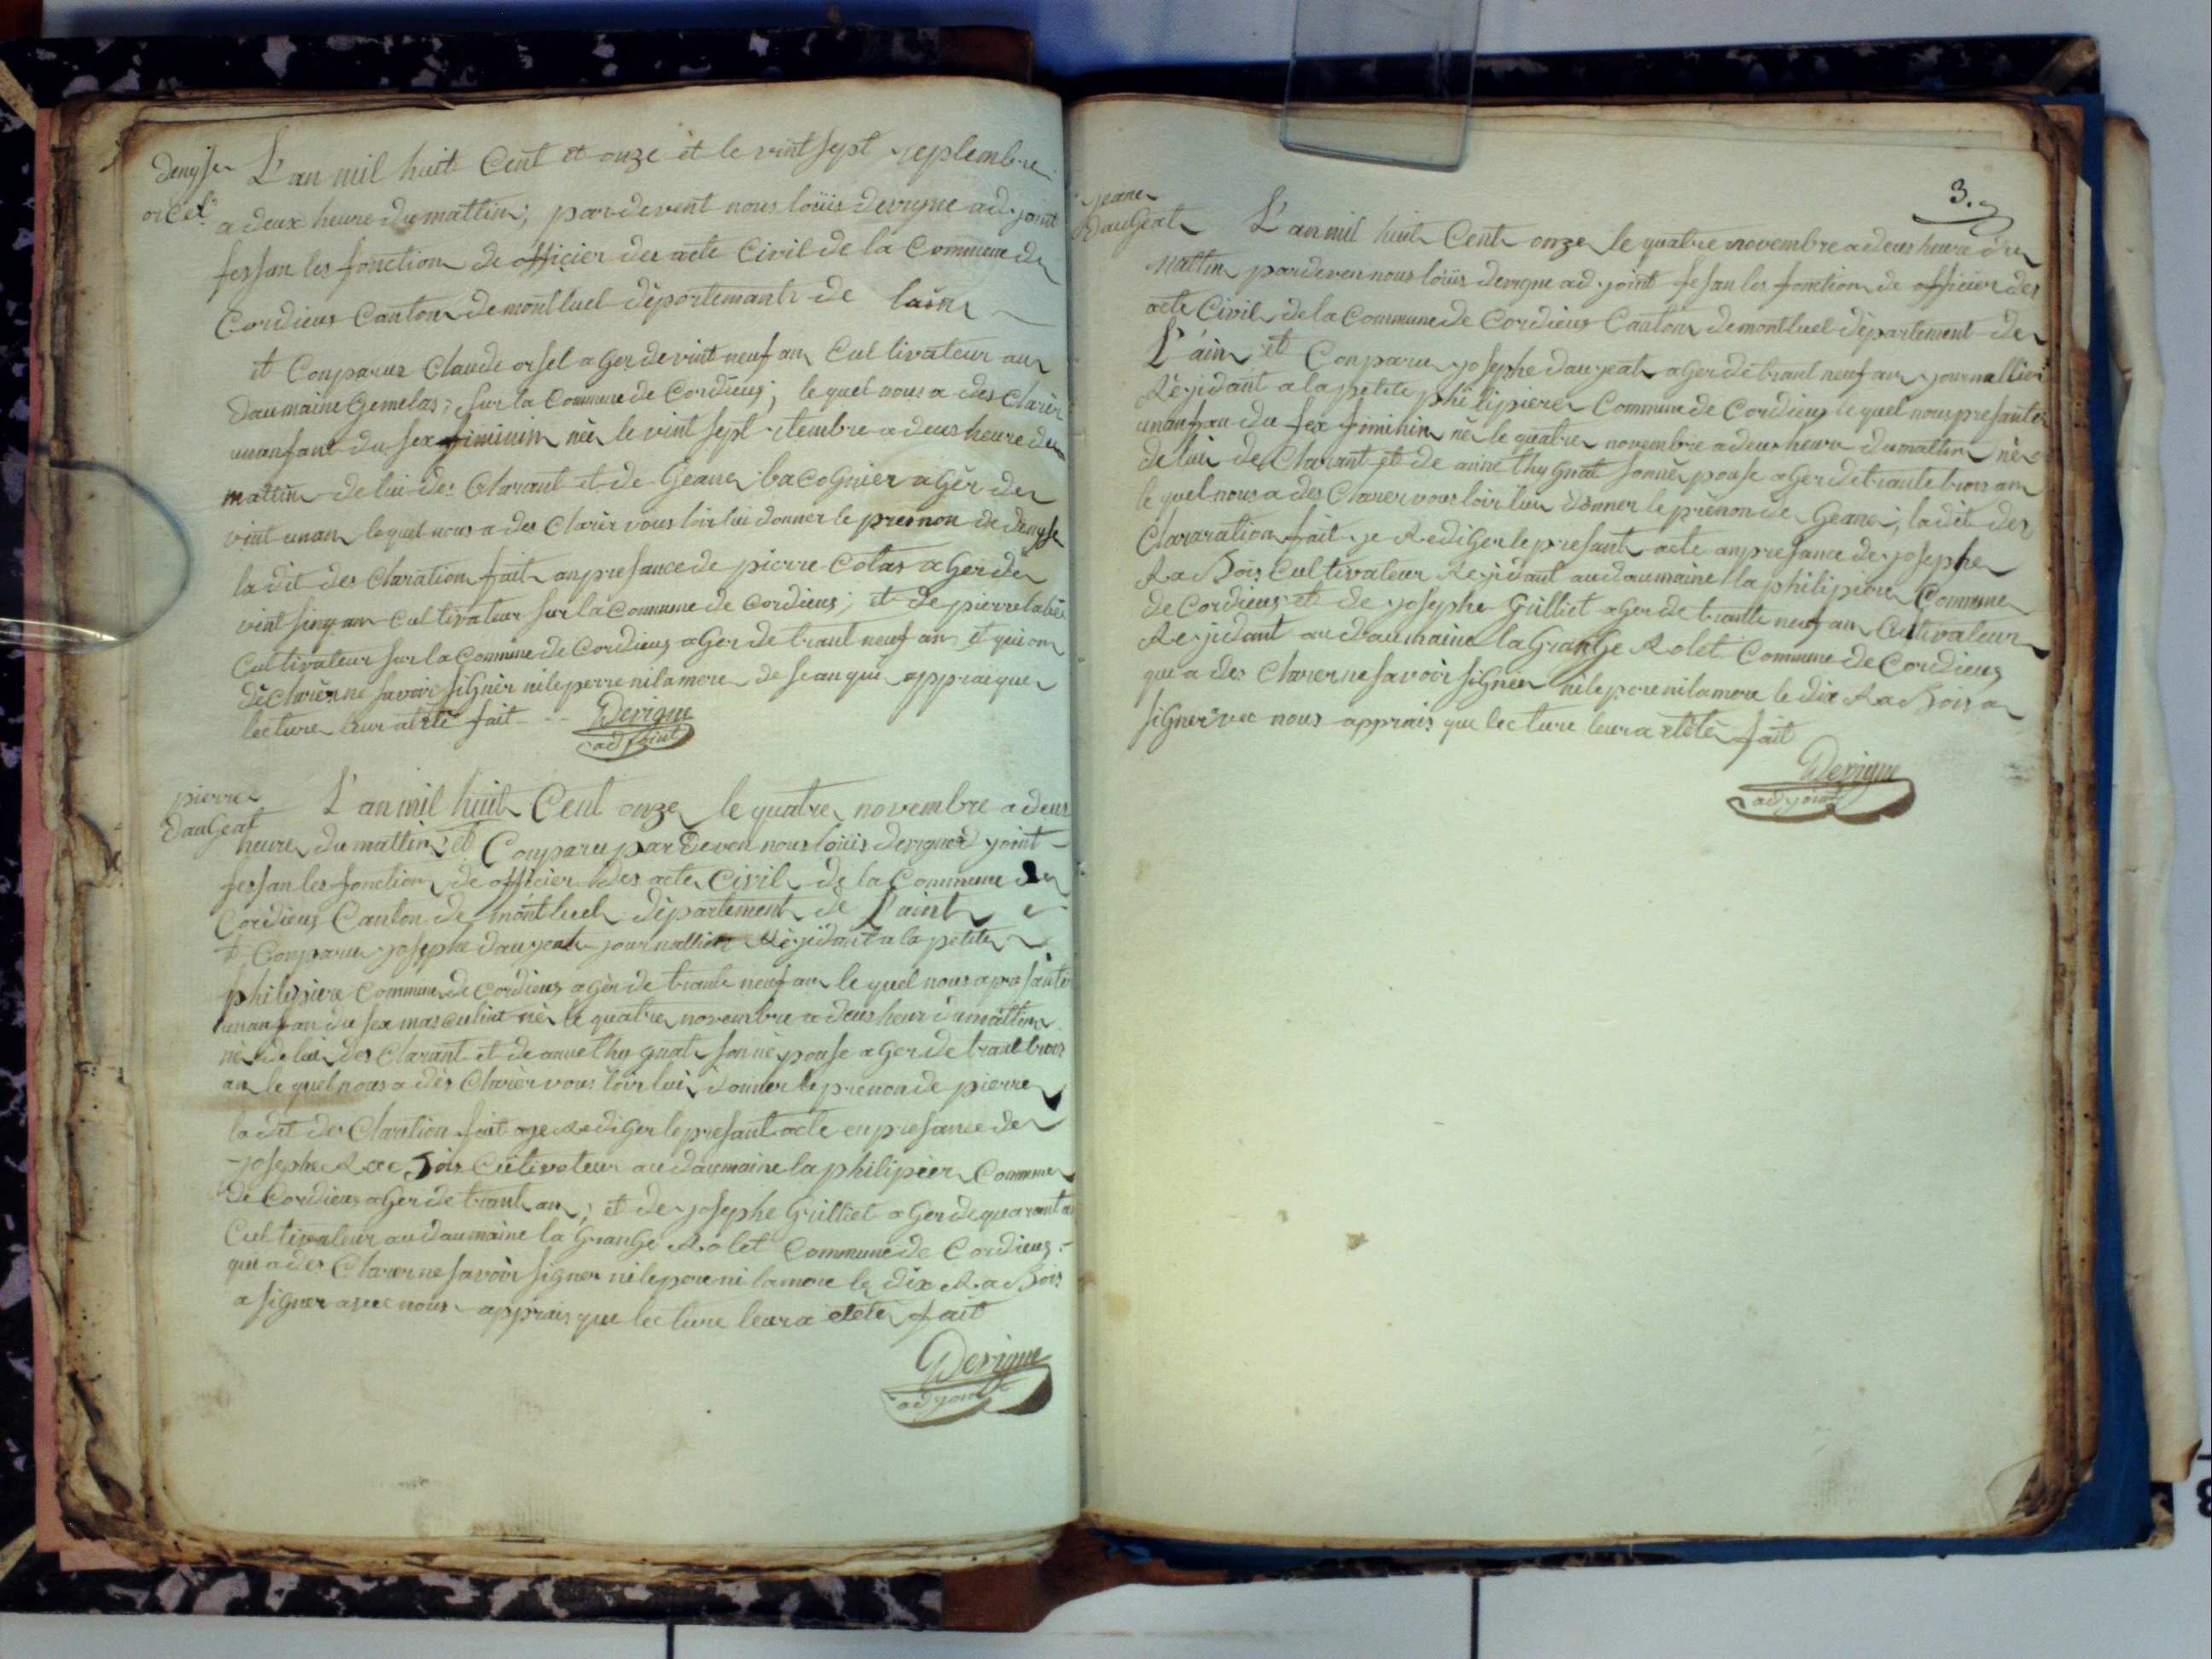 denyse
orcel
L'an mil huit Cent et onze et le vint sept septembre
a deux heure du mattin; par devent nous loüis derigne ad joint
fessan les fonction de officier des acte Civil de la Commune de
Cordieus Canton de montluel département de lain
et Conparus Claude orsel a Ger de vint neuf an Cultivateur au
daumaine Gemelas; sur la Commune de Cordieus; le quel nous a des Clarér
un anfant du sex fiminin née le vint sept tembre a deus heure du
mattin de lui des Clarant et de Geane bacoGnier a Gér de
vint un an le quel nous a des Clarér vous loir lui donner le presnon de denyse
la dit des Claration fait an presance de pierre Cotas a Ger de
vint sinq an Cultivateur sur la Commune de Cordieus; et de pierre labés
Cultivateur sur la Commune de Cordieus a Ger de trant neuf an et qui on
déClarér ne savoir siGnér ni le perre ni la mere de se an qui apprai que
lecture leur a été fait -- Derigne
ad joint
pierre
dauGeat
L'an mil huit Cent onze le quatre novembre a deus
heure du mattin et Conparu par deven nous loüis derigne ad joint
fessan les fonction de officier des acte Civil de la Commune de
Cordieus Canton de montluel département de L'aint
et Conparu josephe daugeat journallier Résidant a la petite
philipiere Commune de Cordieus a Gér de trante neuf an le quel nous a presanté
un anfan du sex masculint né le quatre novembre a deus heur du mattin
né de lui des Clarant et de anne thygnat son népouse a Ger de trant trois
an le quel nous a dés Clarér vous loir lui donner le prenon de pierre
la dit des Claration fait aje Rediger le presant acte en presance de
josephe RaBois Cultivateur au daumaine la philipier Commune
de Cordieus a Ger de trant an; et de josephe Gulliet a Ger de quarant an
Cultivateur au daumaine la GranGe Rolet Commune de Cordieus
qui a des Clarer ne savoir signer ni le pere ni la mere le dix RaBois
a signer avec nous apprais que lecture leur a etété fait
Derigne
adjoint
3.
jeane
dauGeat
L'an mil huit Cent onze le quatre novembre a deus heure du
mattin par deven nous loüis derigne ad joint fesan les fonction de officier des
acte Civil de la Commune de Cordieus Canton de montluel département de
L'ain et Conparu josephe daugeat a Ger de trant neuf an journallier
Résidant a la petite philipiere Commune de Cordieus le quel nous presanter
un anfan du sex fiminin né le quatre novembre a deus heure du mattin né
de lui des Clarant et de anne thyGnat son népouse a Ger de trante trois an
le quel nous a des Clarer vous loir lui donner le prénon de Geane; la dit des
Clararation fait je RediGer le presant acte an presance de josephe
RaBois Cultivateur Residant au daumaine la philipiere Commune
de Cordieus et de josephe Gulliet a Ger de trantte neuf an Cultivateur
Residant au daumaine la GranGe Rolet Commune de Cordieus
qui a des Clarer ne savoir siGner ni le pere ni la mere le dix RaBois a
siGner avec nous apprais que lecture leur a etété fait
Derigne
adjoint